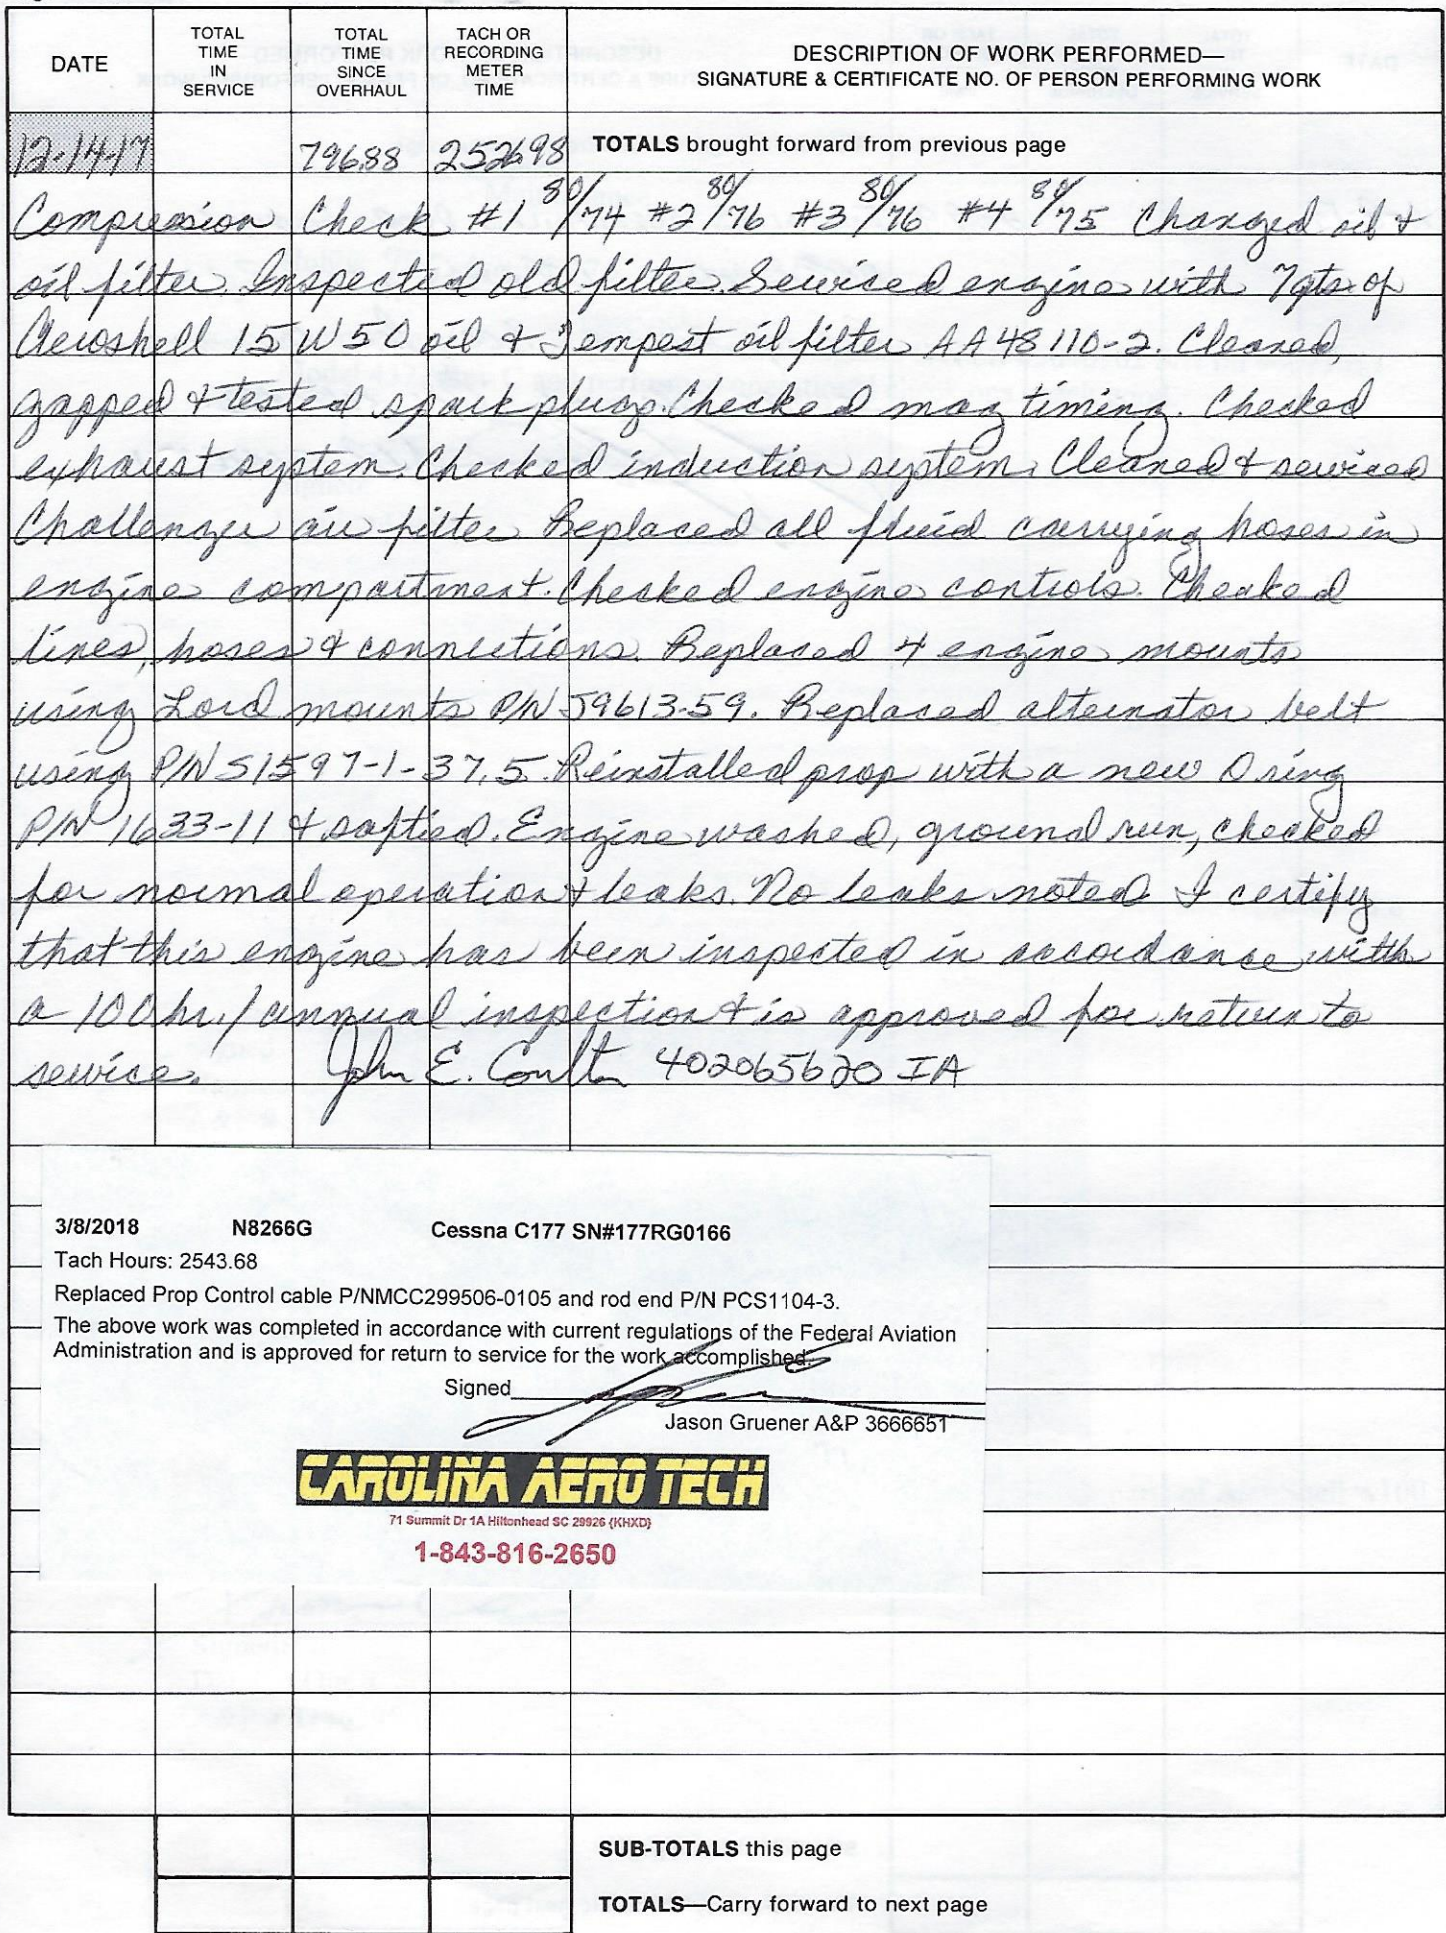 DATE
TOTAL TIME IN SERVICE
TOTAL TIME SINCE OVERHAUL
TACH OR RECORDING METER TIME
DESCRIPTION OF WORK PERFORMED—
SIGNATURE & CERTIFICATE NO. OF PERSON PERFORMING WORK
12-14-17 796.88 2526.98 TOTALS brought forward from previous page
Compression Check #1 80/74 #2 80/76 #3 80/76 #4 80/75 Changed oil &
oil filter. Inspected old filter. Serviced engine with 7qts of
Aeroshell 15W50 oil & Tempest oil filter AA48110-2. Cleaned,
gapped & tested spark plugs. Checked mag timing. Checked
exhaust system. Checked induction system. Cleaned & serviced
Challenger air filter. Replaced all fluid carrying hoses in
engine compartment. Checked engine controls. Checked
lines, hoses & connections. Replaced 4 engine mounts
using Lord mounts P/N J9613-59. Replaced alternator belt
using P/N S1597-1-37.5. Reinstalled prop with a new O ring
P/N 1633-11 & saftied. Engine washed, ground run, checked
for normal operation & leaks. No leaks noted. I certify
that this engine has been inspected in accordance with
a 100 hr./annual inspection & is approved for return to
service. John E. Coulter 402065620 IA
3/8/2018 N8266G Cessna C177 SN#177RG0166
Tach Hours: 2543.68
Replaced Prop Control cable P/NMCC299506-0105 and rod end P/N PCS1104-3.
The above work was completed in accordance with current regulations of the Federal Aviation
Administration and is approved for return to service for the work accomplished.
Signed
Jason Gruener A&P 3666651
CAROLINA AERO TECH
71 Summit Dr 1A Hiltonhead SC 29926 {KHXD}
1-843-816-2650
SUB-TOTALS this page
TOTALS—Carry forward to next page